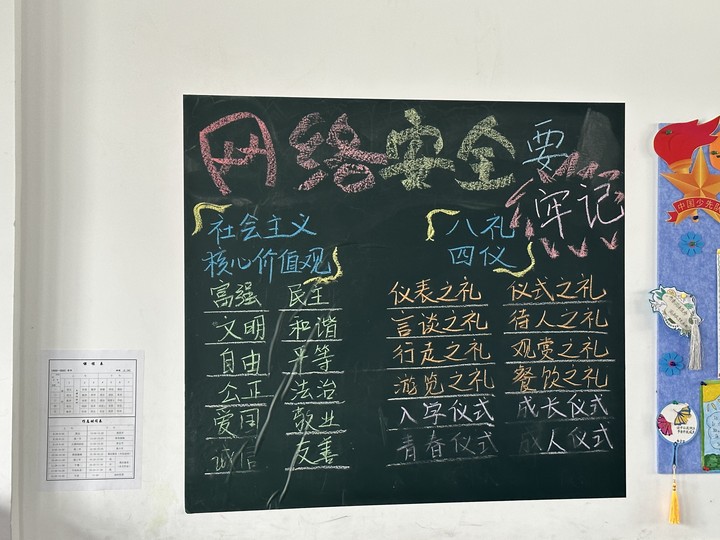 网络安全要
牢记
社会主义
核心价值观
富强 民主
文明 和谐
自由 平等
公正 法治
爱国 敬业
诚信 友善
八礼
四仪
仪表之礼 仪式之礼
言谈之礼 待人之礼
行走之礼 观赏之礼
游览之礼 餐饮之礼
入学仪式 成长仪式
青春仪式 成人仪式
中国少先队